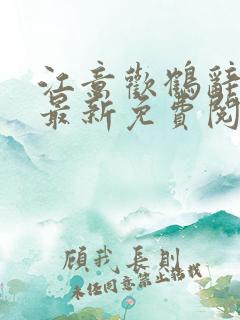 江意歡鶴辭
最新免費閱
顧我長則
未经同意禁止搭载